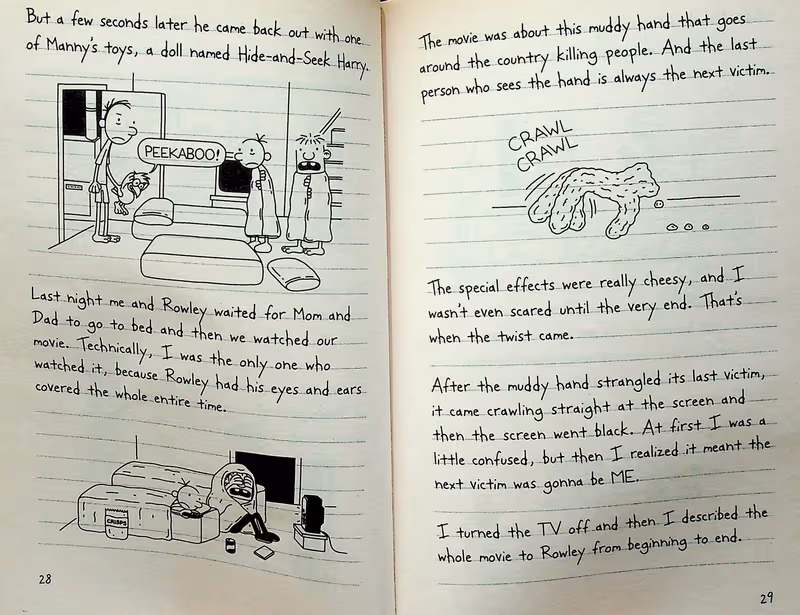 But a few seconds later he came back out with one
of Manny's toys, a doll named Hide-and-Seek Harry.
PEEKABOO!
Last night me and Rowley waited for Mom and
Dad to go to bed and then we watched our
movie. Technically, I was the only one who
watched it, because Rowley had his eyes and ears
covered the whole entire time.
CRISPS
28
The movie was about this muddy hand that goes
around the country killing people. And the last
person who sees the hand is always the next victim.
CRAWL
CRAWL
The special effects were really cheesy, and I
wasn't even scared until the very end. That's
when the twist came.
After the muddy hand strangled its last victim,
it came crawling straight at the screen and
then the screen went black. At first I was a
little confused, but then I realized it meant the
next victim was gonna be ME.
I turned the TV off and then I described the
whole movie to Rowley from beginning to end.
29